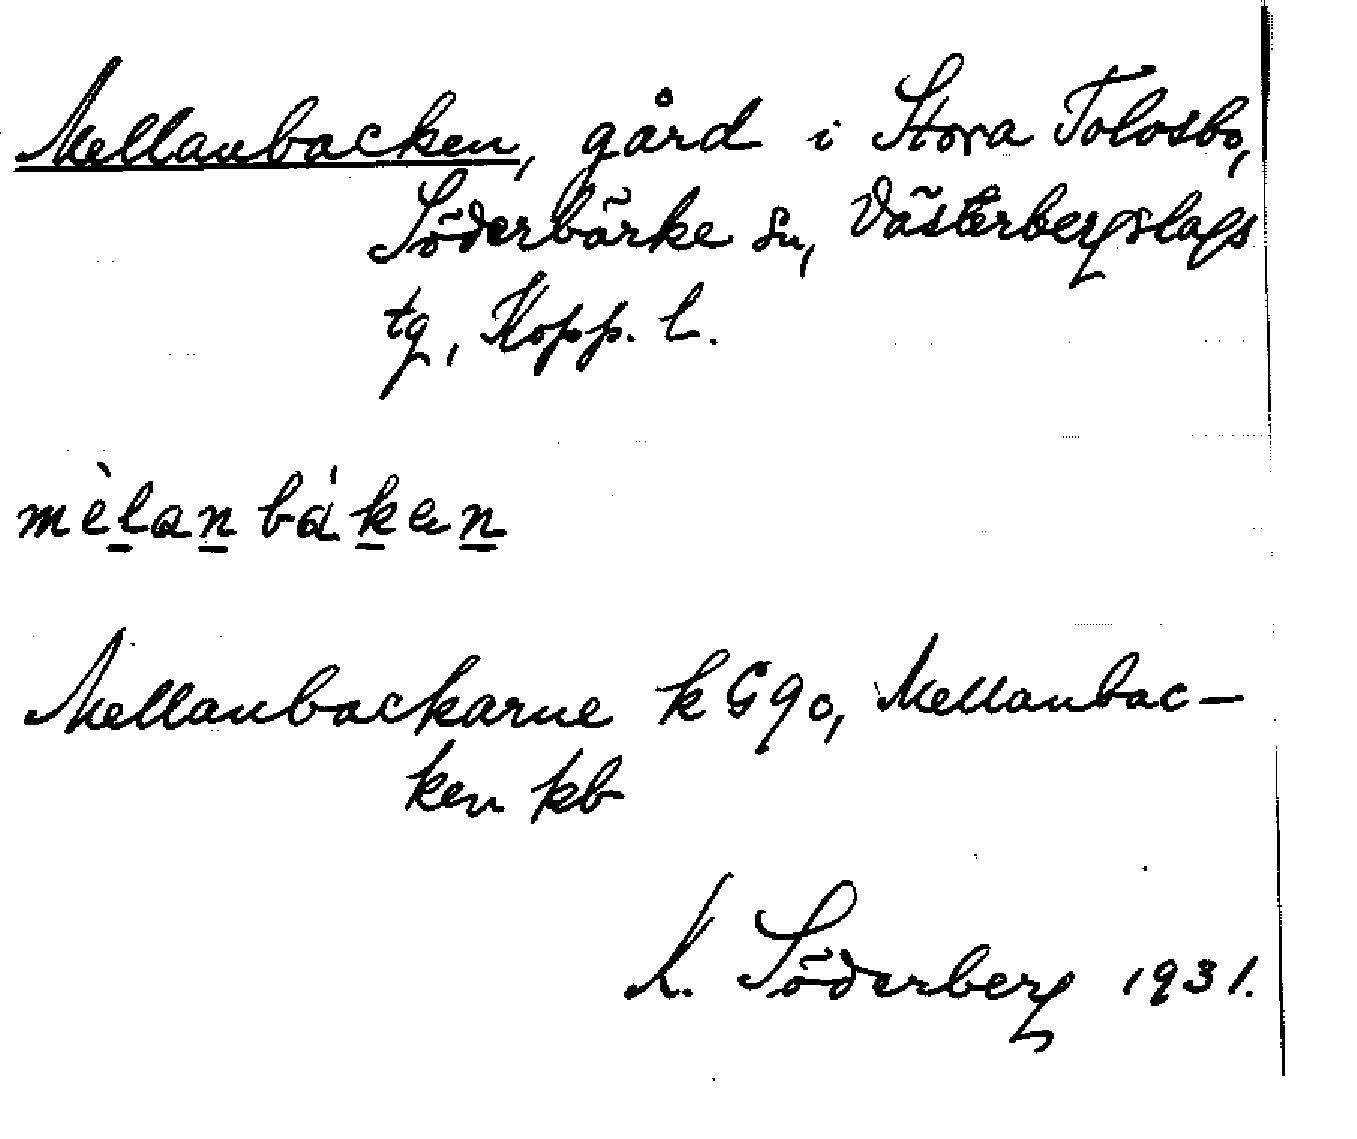 Mellanbacken, gård i Stora Tolvsbo,
Söderbärke sn, Västerbergslags
tg, Kopp. l.
mèlanbákan
Mellanbackarne k G90, Mellanbac-
ken kb
K. Söderberg 1931.